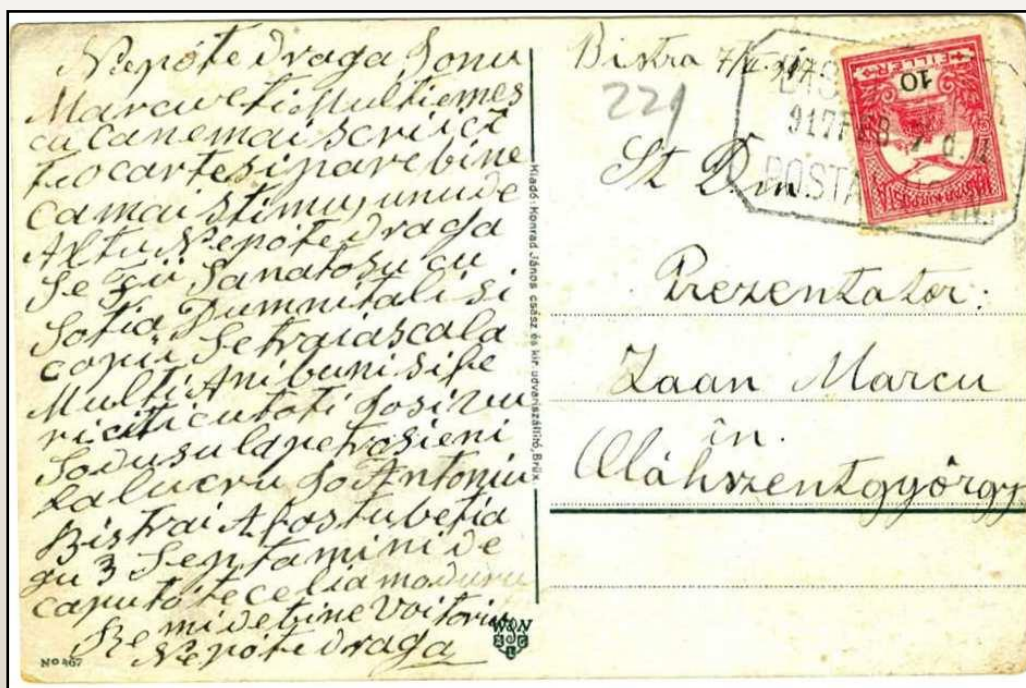 Nepóte draga Ionu
Marcu eti Multiemes
cu canemai scriści
tiocarte siparebine
camai stimu unude
Altu Nepóte draga
Se fii Sanatosu cu
Sotia Dumnitali si
copii Setraiascala
Multi Ani buni sife
riciti cutoti Iosivu
Iodusu lapetrosieni
La lucru So Antoniu
Bistrai Afostubetia
gu 3 Septamini de
caputóte celia moduru
Remidebine Voitoriu
Nepóte draga
No 467
W&N
Kiadó: Konrad János csász és kir. udvariszállító, Brüx
Bistra 7/II 917
221
917 FEB
POSTA
10
FILLÉR
MAGYAR KIR. POSTA
St Dm
Prezentator:
Zaan Marcu
in.
Oláhszentgyörgy